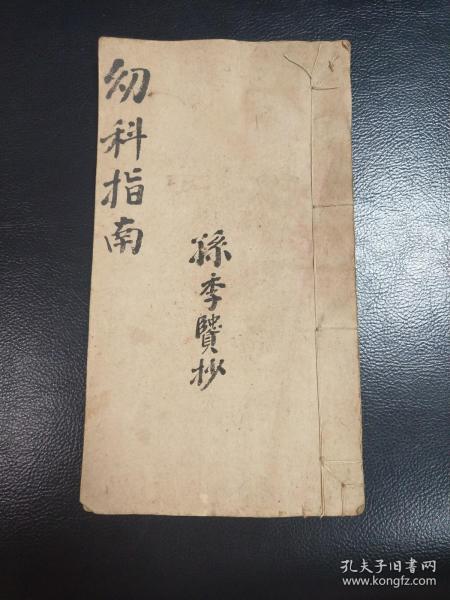 幼科指南
孫季贒抄
孔夫子旧书网
www.kongfz.com